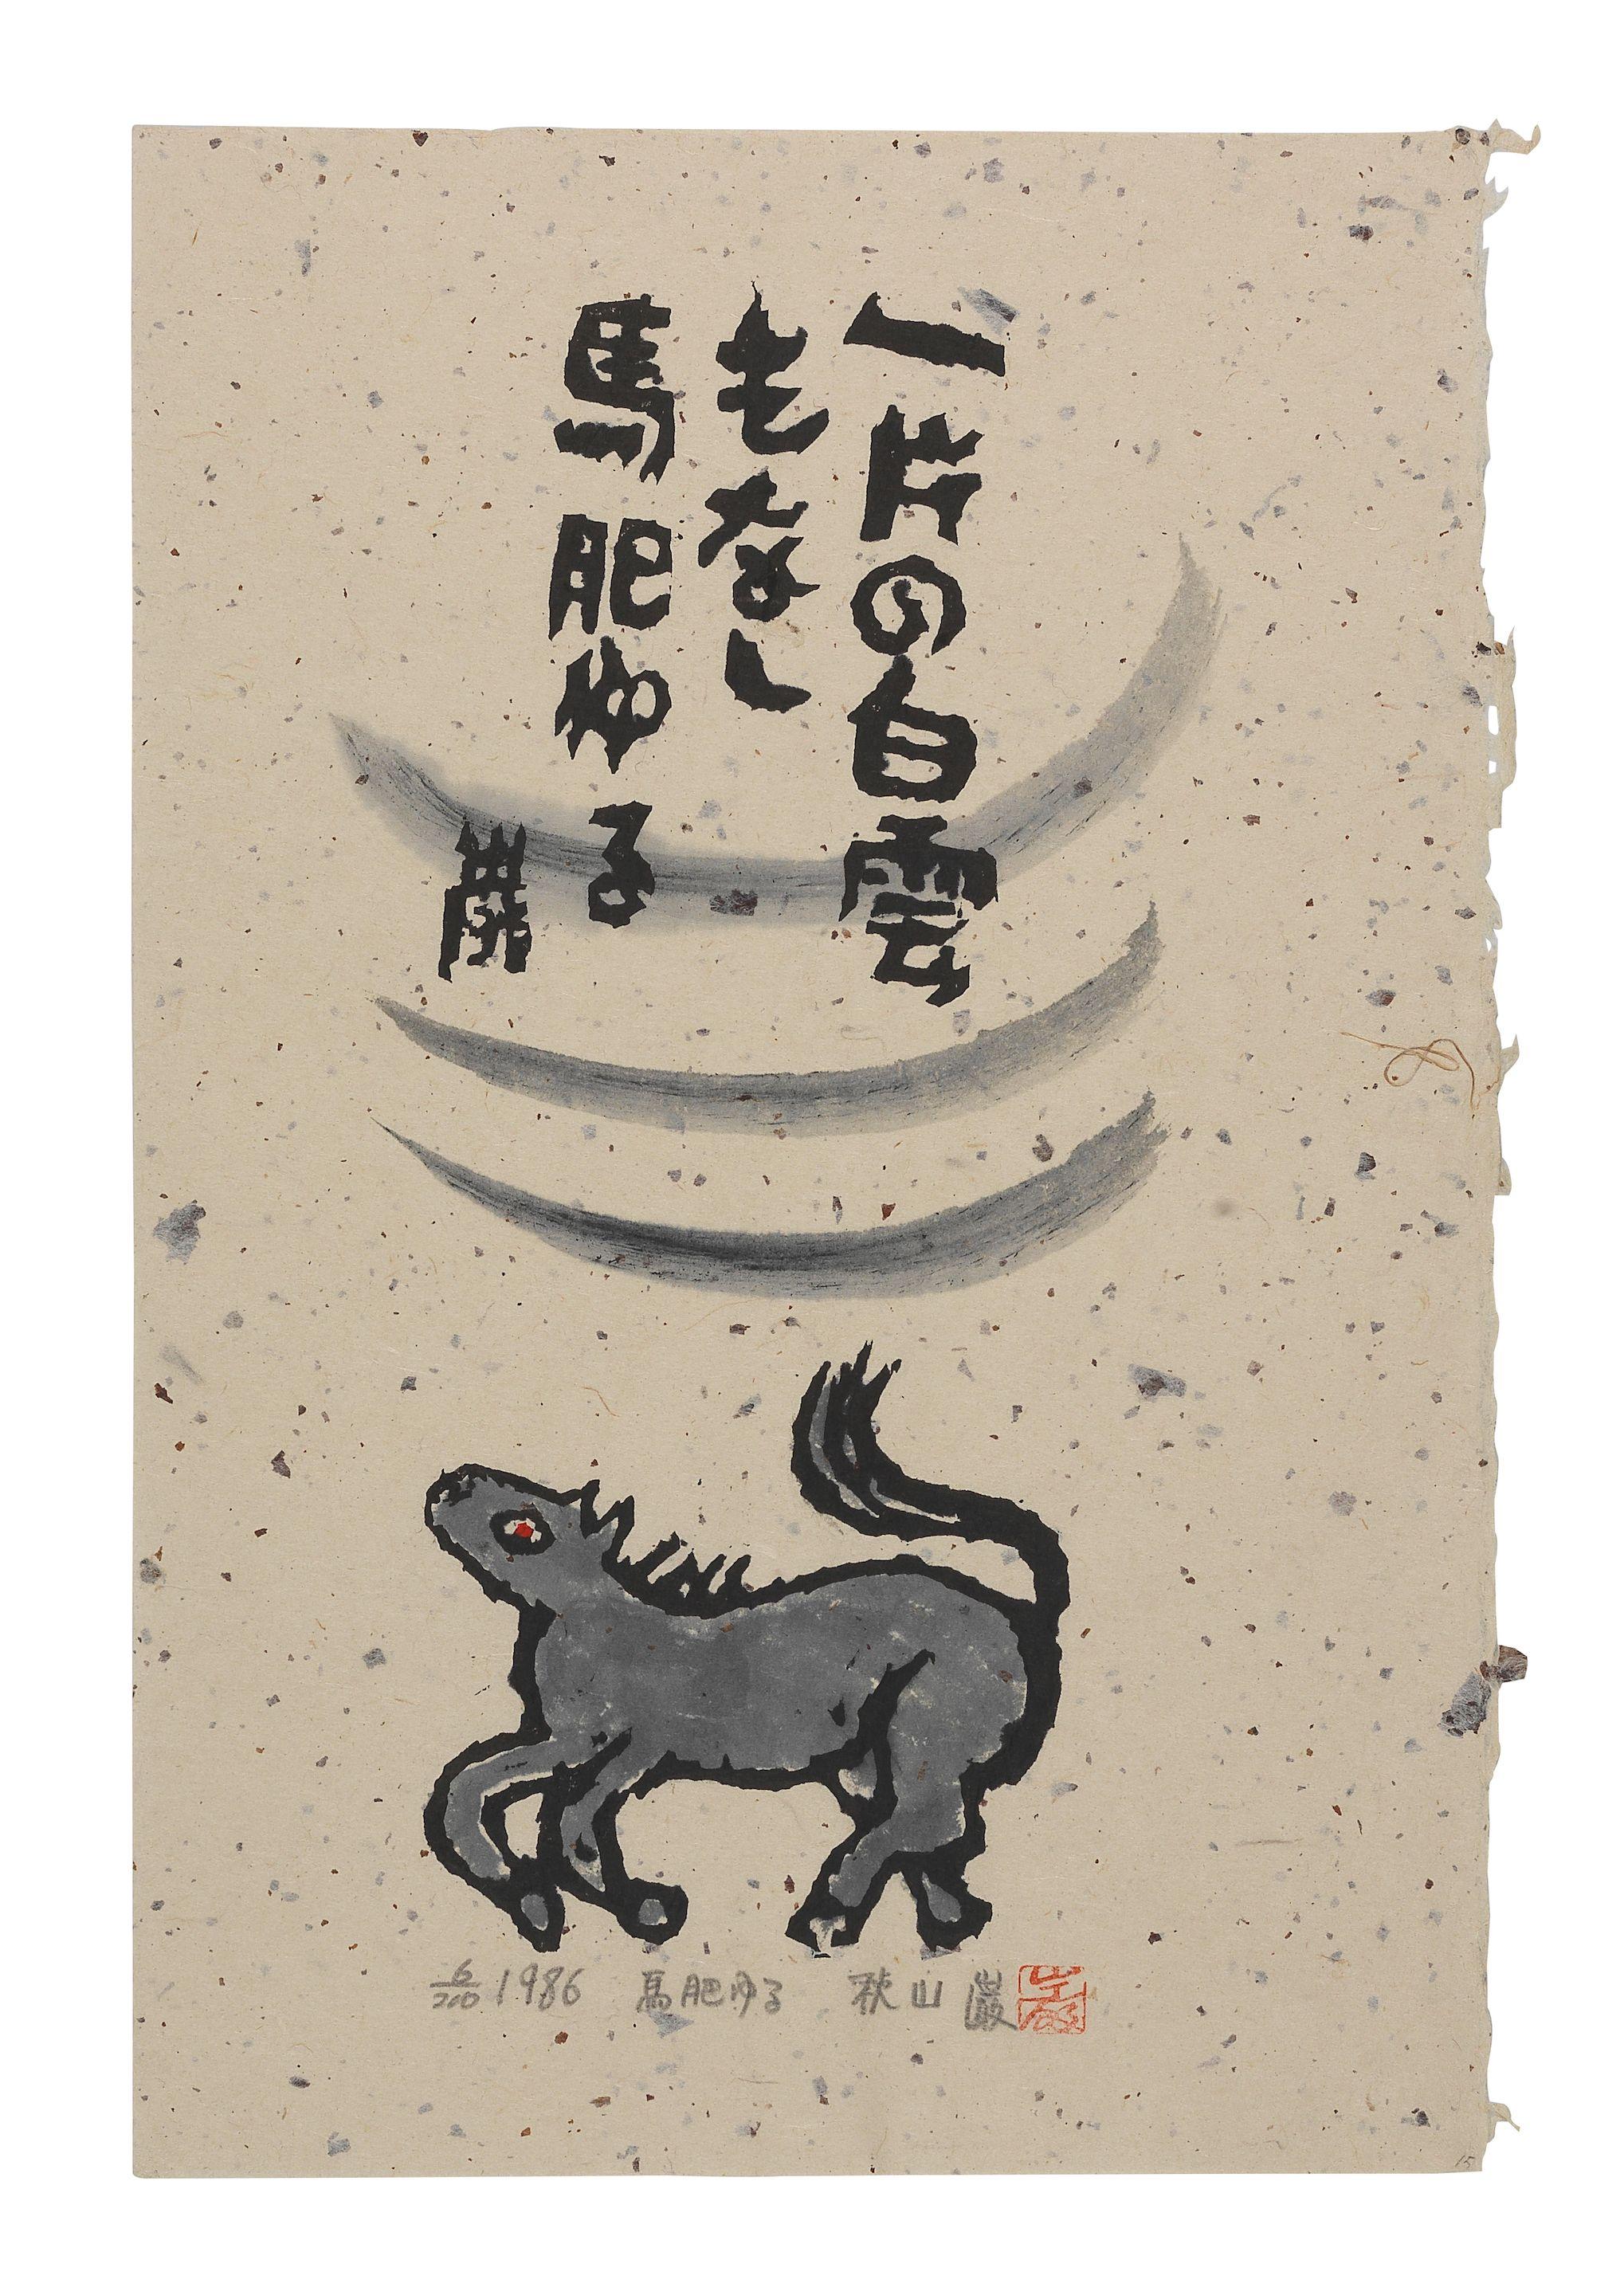 一片の白雲
もなし
馬肥ゆる
巌
6/200 1986 馬肥ゆる 秋山巌
巌
15